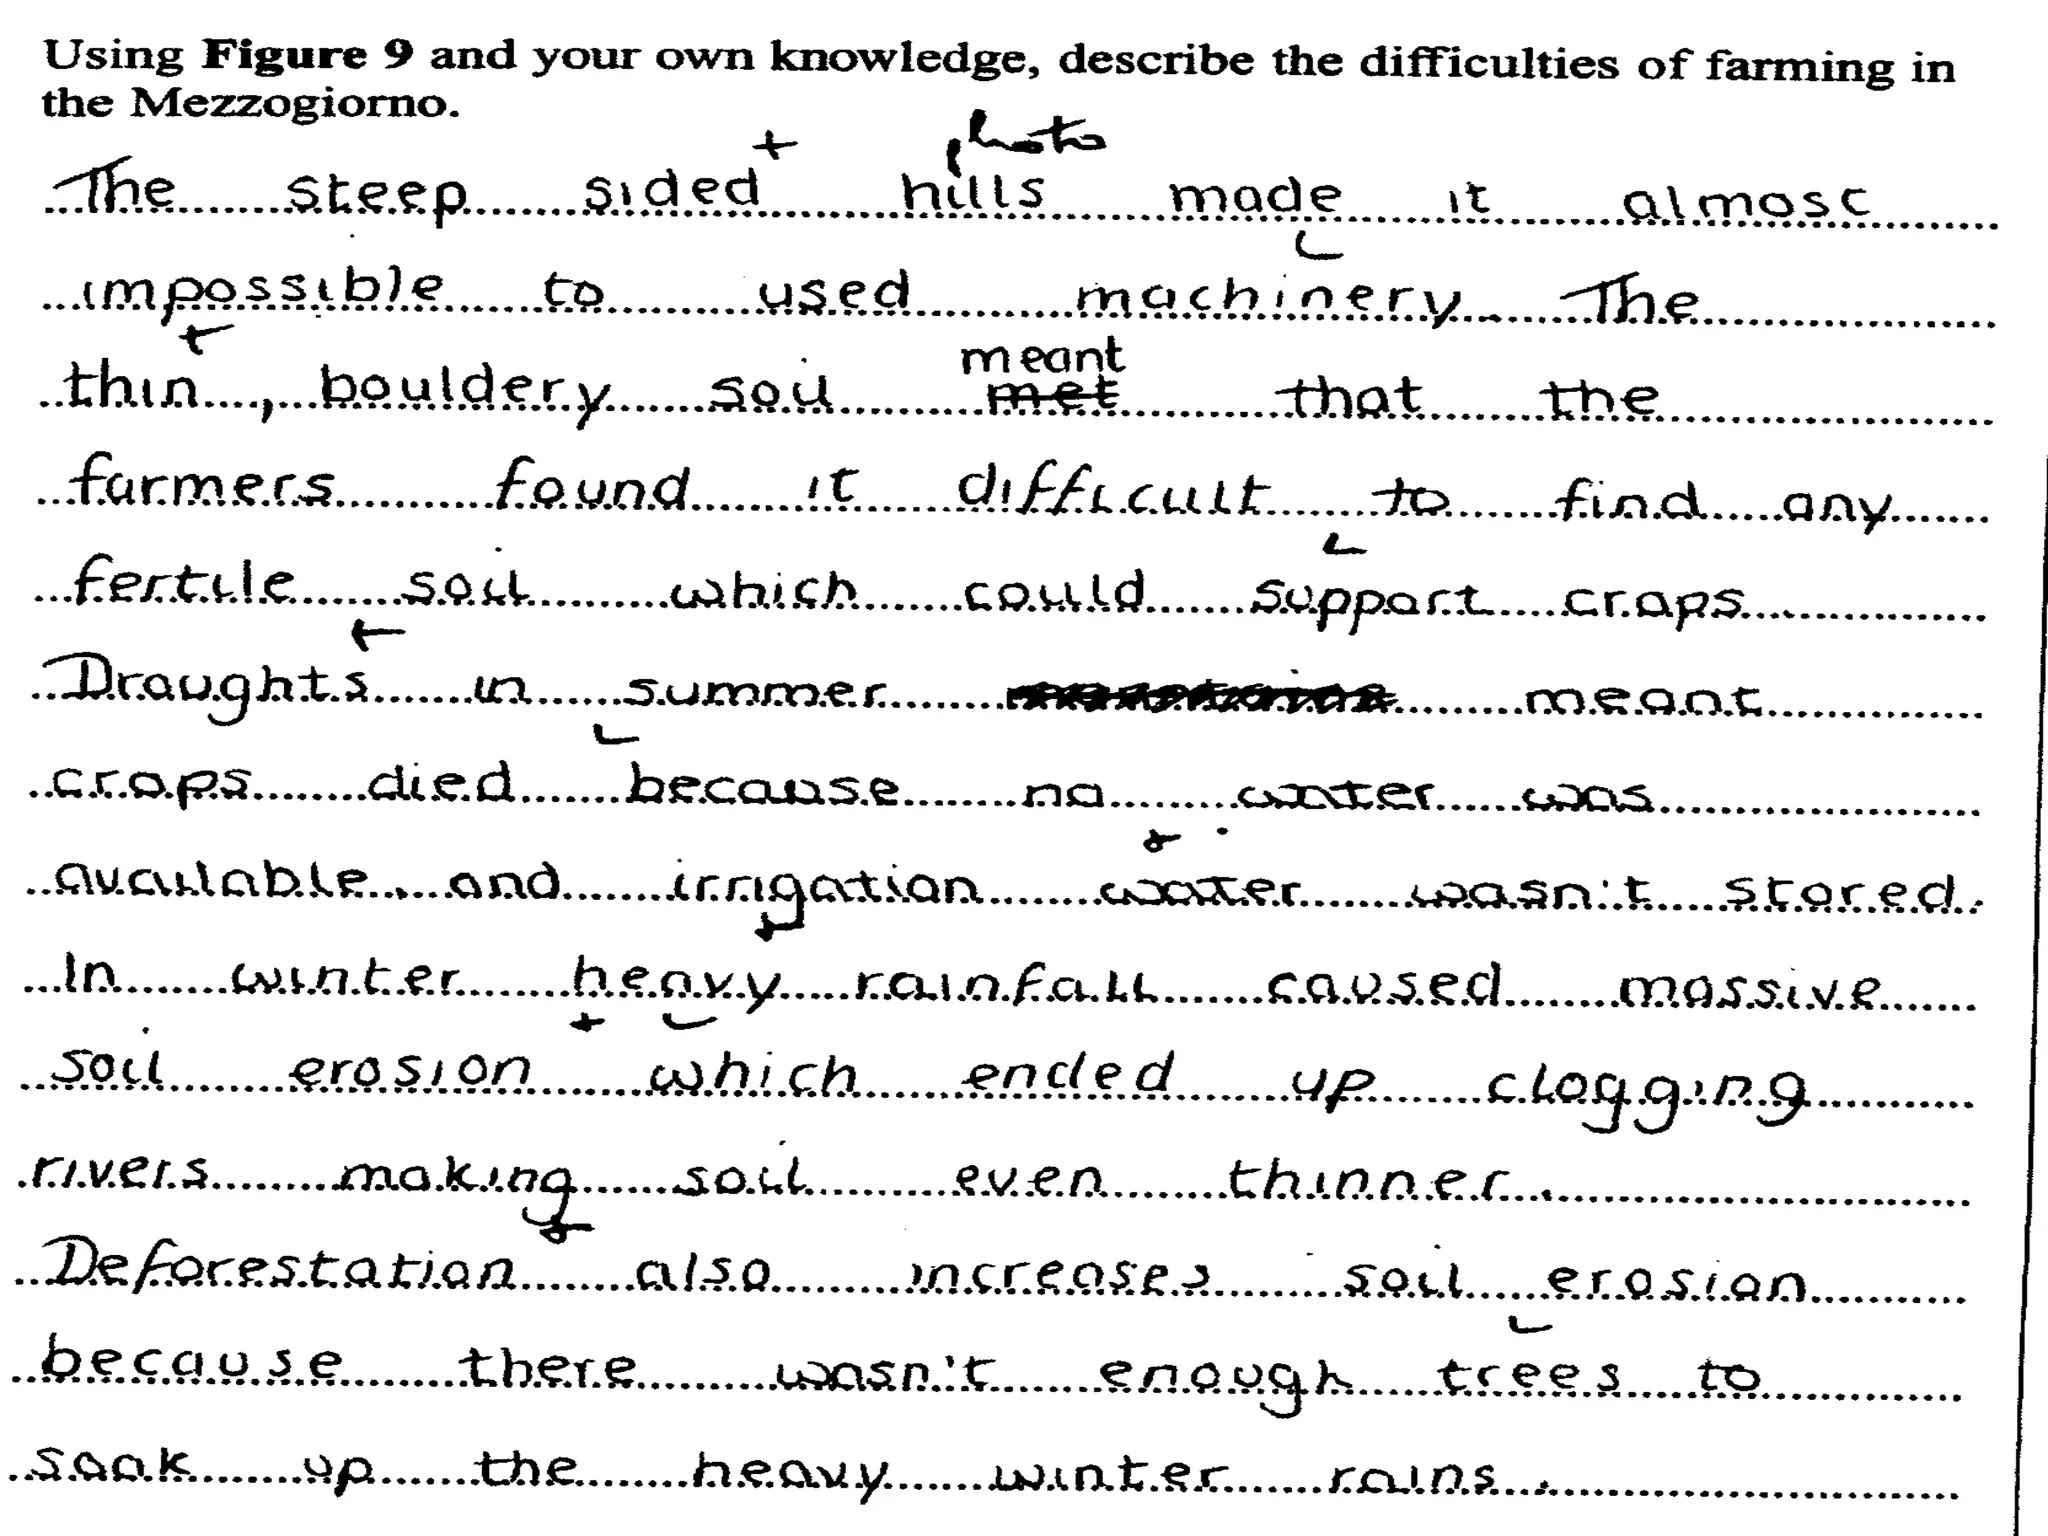 Using Figure 9 and your own knowledge, describe the difficulties of farming in
the Mezzogiorno.
photo
The steep sided hills made it almost
impossible to used machinery. The
meant
thin, bouldery soil met that the
farmers found it difficult to find any
fertile soil which could support crops.
Draughts in summer meant
crops died because no water was
available. and irrigation water wasn't stored.
In winter heavy rainfall caused massive
soil erosion which ended up clogging
rivers making soil even thinner.
Deforestation also increases soil erosion
because there wasn't enough trees to
soak up the heavy winter rains.